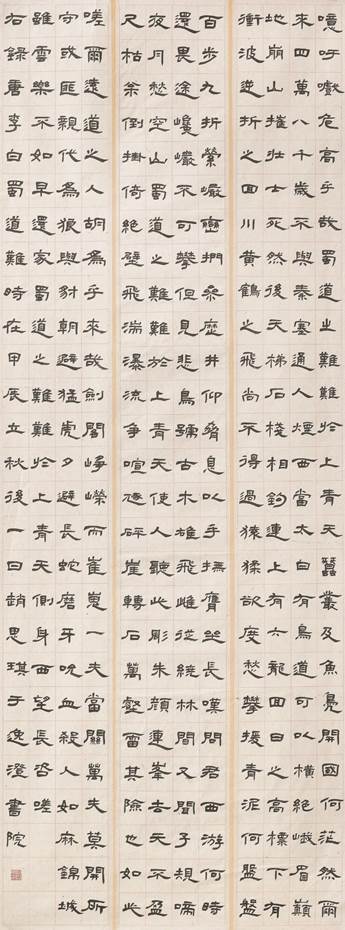 噫吁嚱危高乎哉蜀道之難難於上青天蠶叢及魚鳧開國何茫然爾
來四萬八千歲不與秦塞通人煙西當太白有鳥道可以橫絕峨眉巔
地崩山摧壯士死然後天梯石棧相鉤連上有六龍回日之高標下有
衝波逆折之回川黃鶴之飛尚不得過猿猱欲度愁攀援青泥何盤盤
百步九折縈巖巒捫參歷井仰脅息以手撫膺坐長嘆問君西游何時
還畏途巉巖不可攀但見悲鳥號古木雄飛雌從繞林間又聞子規啼
夜月愁空山蜀道之難難於上青天使人聽此彫朱顏連峯去天不盈
尺枯松倒掛倚絕壁飛湍瀑流爭喧豗砯崖轉石萬壑雷其險也如此
嗟爾遠道之人胡爲乎來哉劍閣崢嶸而崔嵬一夫當關萬夫莫開所
守或匪親化爲狼與豺朝避猛虎夕避長蛇磨牙吮血殺人如麻錦城
雖雲樂不如早還家蜀道之難難於上青天側身西望長咨嗟
右錄唐李白蜀道難時在甲辰立秋後一日趙思琪于逸澄書院